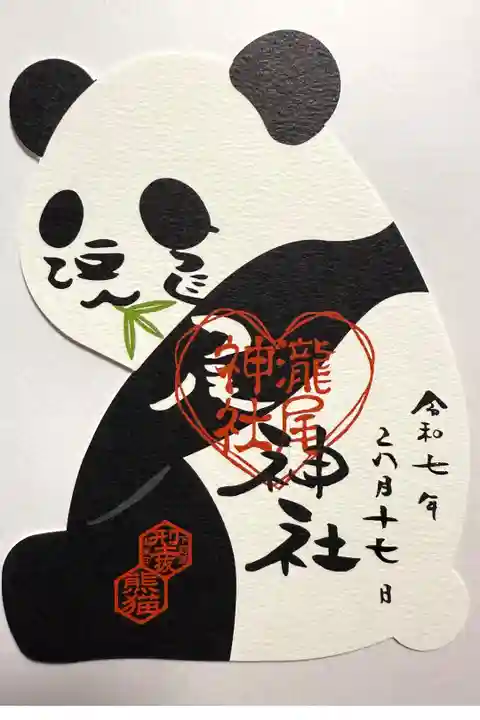 瀧尾神社
瀧尾
神社
令和七年
八月十七日
熊猫